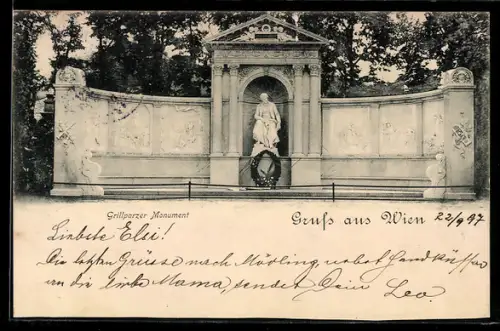 Grillparzer Monument
Gruß aus Wien
22/9 97
Liebste Elsi!
Die letzten Grüsse nach Mödling, nebst Handküssen
an die liebe Mama, sendet Dein Leo.